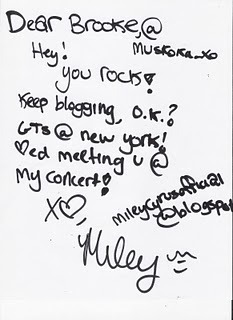 Dear Brooke,@
Muskoka_xo
Hey!
you rock!
Keep blogging, O.K.?
GTS@ new york!
♡ed meeting u @
My concert!
X♡,
mileycyrusofficial
@blogspot
Miley